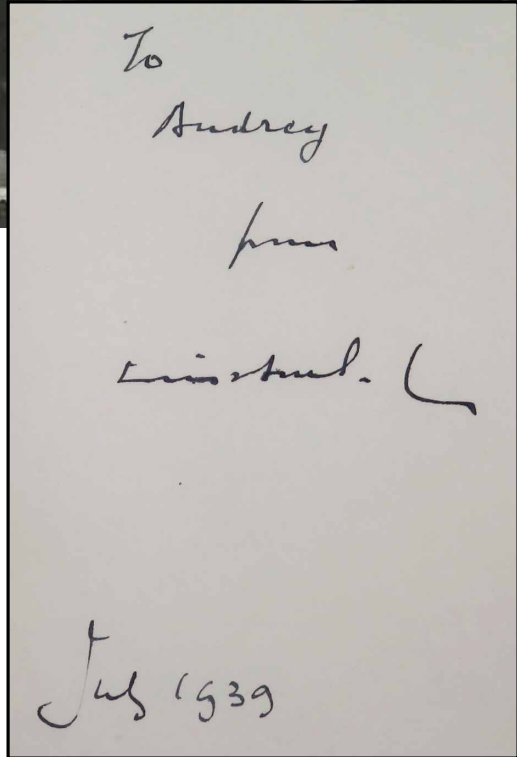 To
Audrey
from
Winston S. C
July 1939